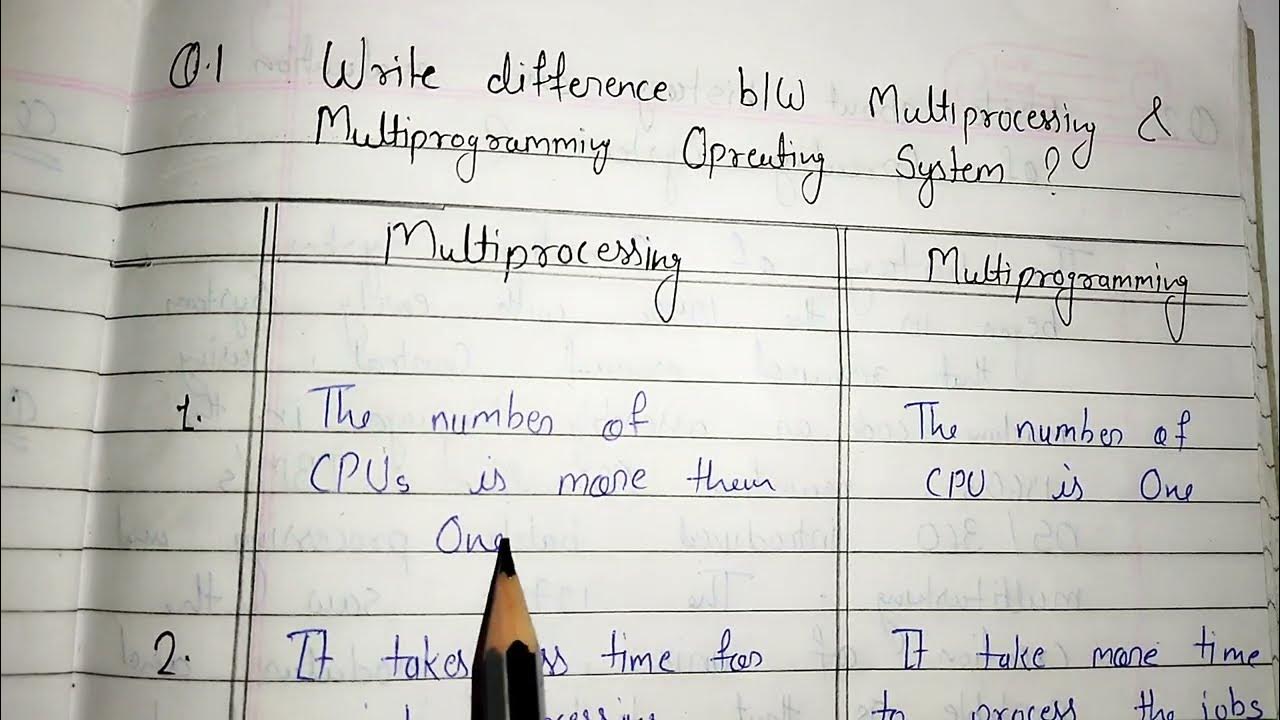 Q.1 Write difference b/w Multiprocessing &
Multiprogramming Opreating System ?
Multiprocessing Multiprogramming
1. The number of The number of
CPUs is more then CPU is One
One
2. It takes time for It take more time
to process the jobs